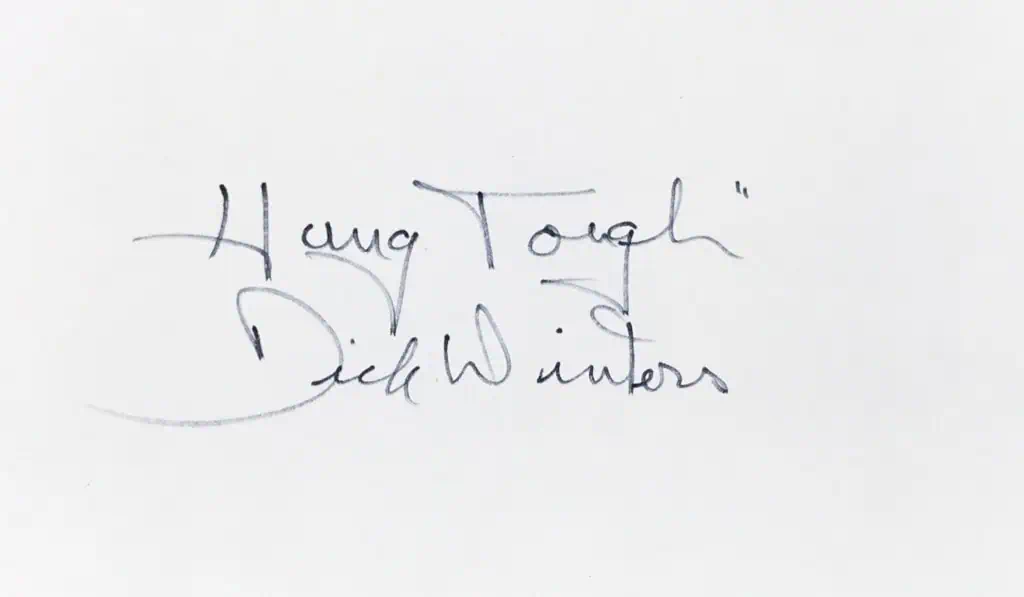 Hang Tough"
Dick Winters